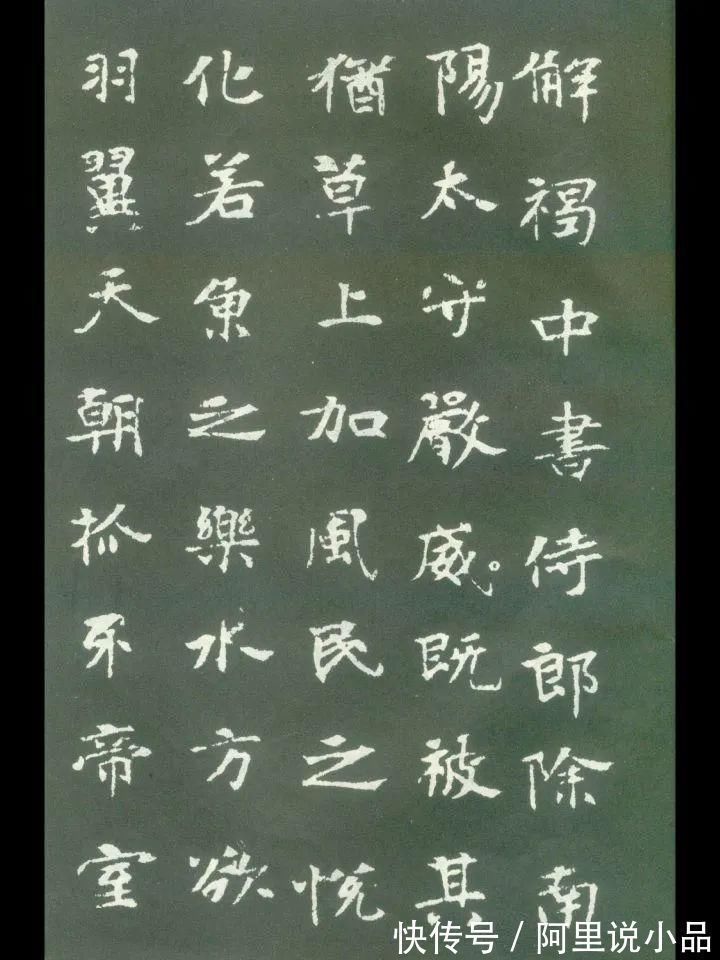 解褐中書侍郎除南
陽太守嚴威。既被其
猶草上加風民之悅
化若魚之樂水方欲
羽翼天朝抓牙帝室
快传号 / 阿里说小品